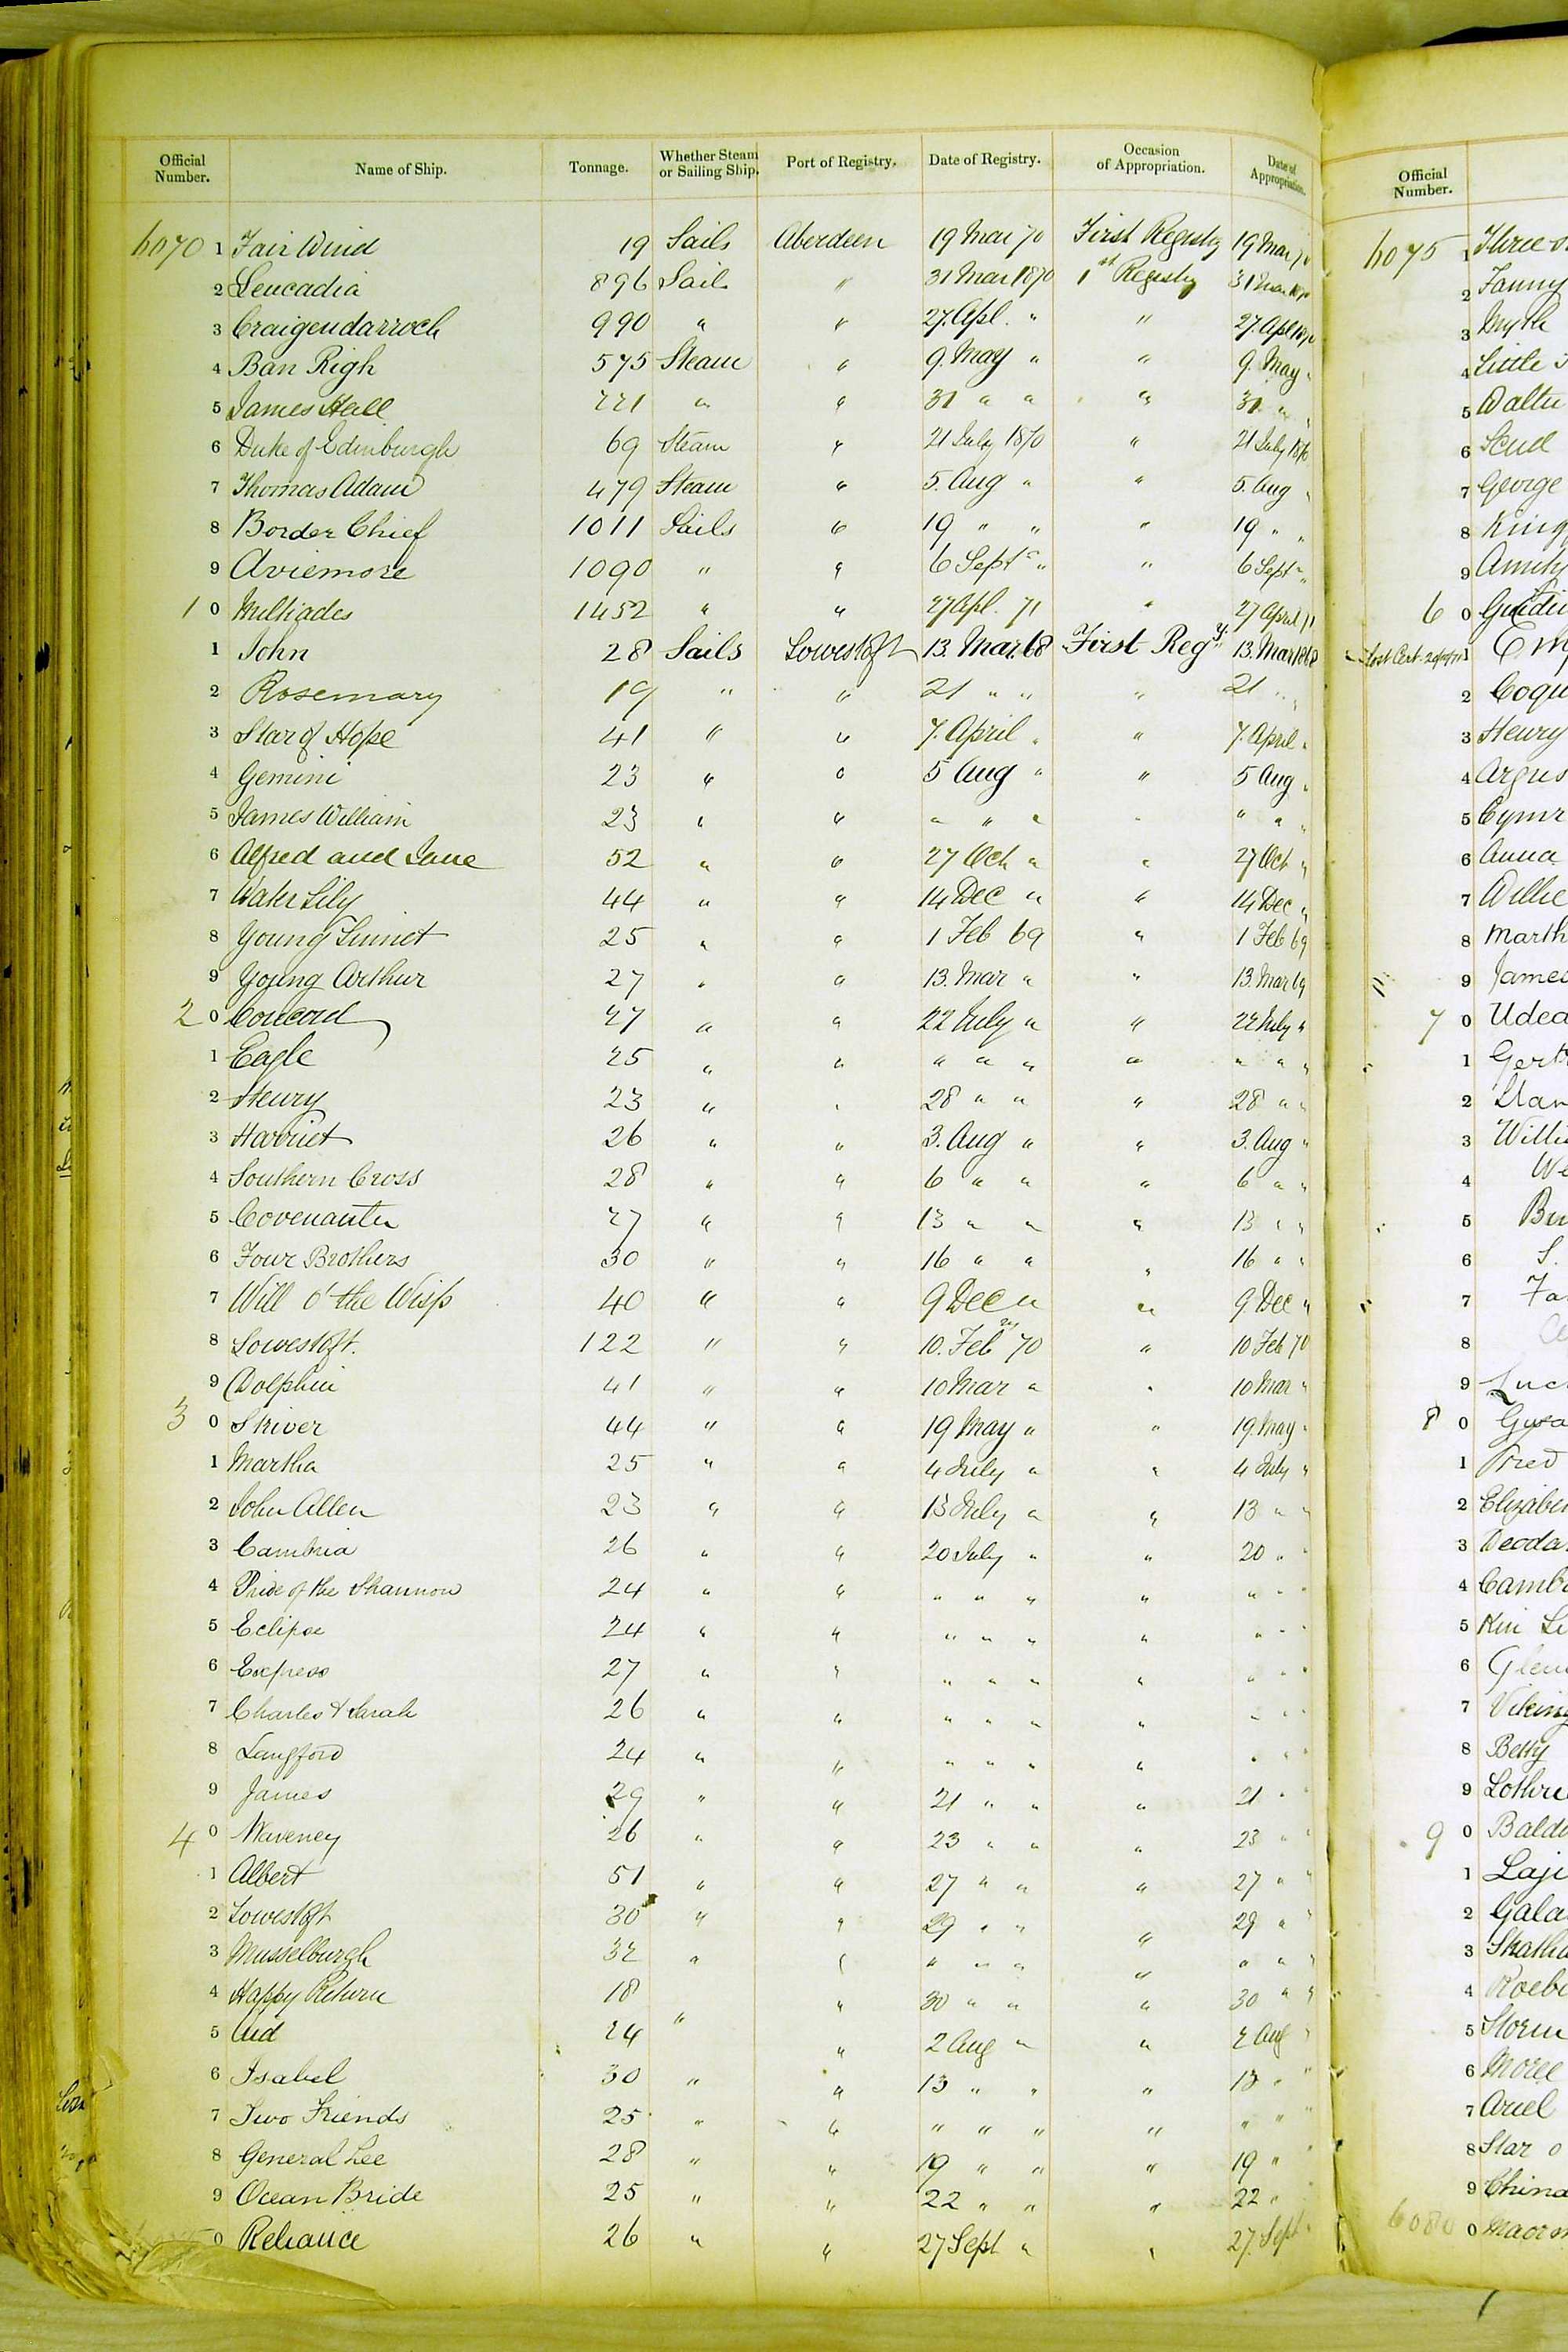 Official Number. Name of Ship. Tonnage. Whether Steam or Sailing Ship. Port of Registry. Date of Registry. Occasion of Appropriation. Date of Appropriation.
6070 1 Fair Wind 19 Sails Aberdeen 19 Mar 70 First Registry 19 Mar 70
2 Leucadia 896 Sail " 31 Mar 1870 1st Registry 31 Mar 1870
3 Craigendarroch 990 " " 27. Apl. " " 27. Apl 1870
4 Ban Righ 575 Steam " 9. May " " 9. May "
5 James Hall 221 " " 31 " " " 31 " "
6 Duke of Edinburgh 69 Steam " 21 July 1870 " 21 July 1870
7 Thomas Adam 479 Steam " 5. Aug " " 5. Aug "
8 Border Chief 1011 Sails " 19 " " " 19 " "
9 Aviemore 1090 " " 6 Sept " " 6 Sept "
1 0 Miltiades 1452 " " 27 Apl. 71 " 27 April 71
1 John 28 Sails Lowestoft 13. Mar. 68 First Regy. 13. Mar 1868
2 Rosemary 19 " " 21 " " " 21 " "
3 Star of Hope 41 " " 7. April " " 7. April "
4 Gemini 23 " " 5 Aug " " 5 Aug "
5 James William 23 " " " " " " " " "
6 Alfred and Jane 52 " " 27 Oct " " 27 Oct "
7 Water Lily 44 " " 14 Dec " " 14 Dec "
8 Young Linnet 25 " " 1 Feb 69 " 1 Feb 69
9 Young Arthur 27 " " 13. Mar " " 13. Mar 69
2 0 Concord 27 " " 22 July " " 22 July "
1 Eagle 25 " " " " " " " " "
2 Henry 23 " " 28 " " " 28 " "
3 Harriet 26 " " 3. Aug " " 3. Aug "
4 Southern Cross 28 " " 6 " " " 6 " "
5 Covenanter 27 " " 13 " " " 13 " "
6 Four Brothers 30 " " 16 " " " 16 " "
7 Will o' the Wisp 40 " " 9 Dec " " 9. Dec "
8 Lowestoft. 122 " " 10. Feby 70 " 10 Feb 70
9 Dolphin 41 " " 10 Mar " " 10 Mar "
3 0 Skiver 44 " " 19 May " " 19 May "
1 Martha 25 " " 4 July " " 4 July "
2 John Allen 23 " " 13 July " " 13 " "
3 Cambria 26 " " 20 July " " 20 " "
4 Pride of the Shannon 24 " " " " " " " " "
5 Eclipse 24 " " " " " " " " "
6 Express 27 " " " " " " " " "
7 Charles & Sarah 26 " " " " " " " " "
8 Langford 24 " " " " " " " " "
9 James 29 " " 21 " " " 21 " "
4 0 Waveney 26 " " 23 " " " 23 " "
1 Albert 51 " " 27 " " " 27 " "
2 Lowestoft 30 " " 29 " " " 29 " "
3 Musselburgh 32 " " " " " " " " "
4 Happy Return 18 " " 30 " " " 30 " "
5 Aid 24 " 2 Aug " " 2 Aug "
6 Isabel 30 " " 13 " " " 13 " "
7 Two Friends 25 " " " " " " " " "
8 General Lee 28 " " 19 " " " 19 "
9 Ocean Bride 25 " " 22 " " " 22 "
0 Reliance 26 " " 27 Sept " " 27. Sept "
Official Number.
6075 1 Three
2 Fanny
3 Myth
4 Little
5 Walter
6 Scud
7 George
8 King
9 Amity
6 0
Lost Cert. 1 Em
2 Coqu
3 Henry
4 Argus
5 Cymr
6 Anna
7 Willie
8 Marth
9 James
7 0 Udea
1 Gert
2 Stan
3 Willi
4 We
5
6 S.
7 Fa
8
9 Luc
8 0
1 Fred
2 Elizabe
3 Deoda
4 Camb
5
6 Glen
7 Viking
8 Betty
9 Lothri
9 0 Bald
1
2 Gala
3
4 Roeb
5 Storm
6
7 Ariel
8 Star o
9 China
6080 0 Maor